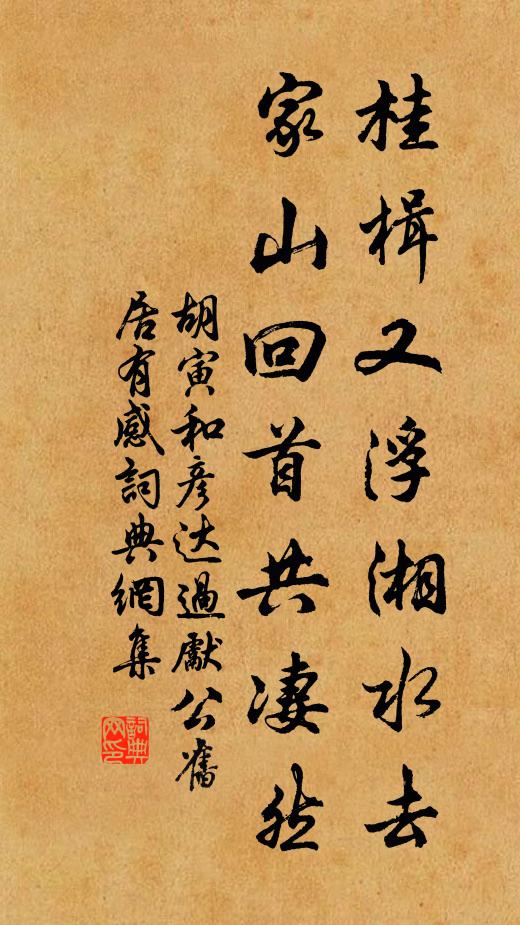 桂楫又浮湘水去
家山回首共凄然
胡寅和彦达過獻公舊
居有感詞典網集
詞典
网印